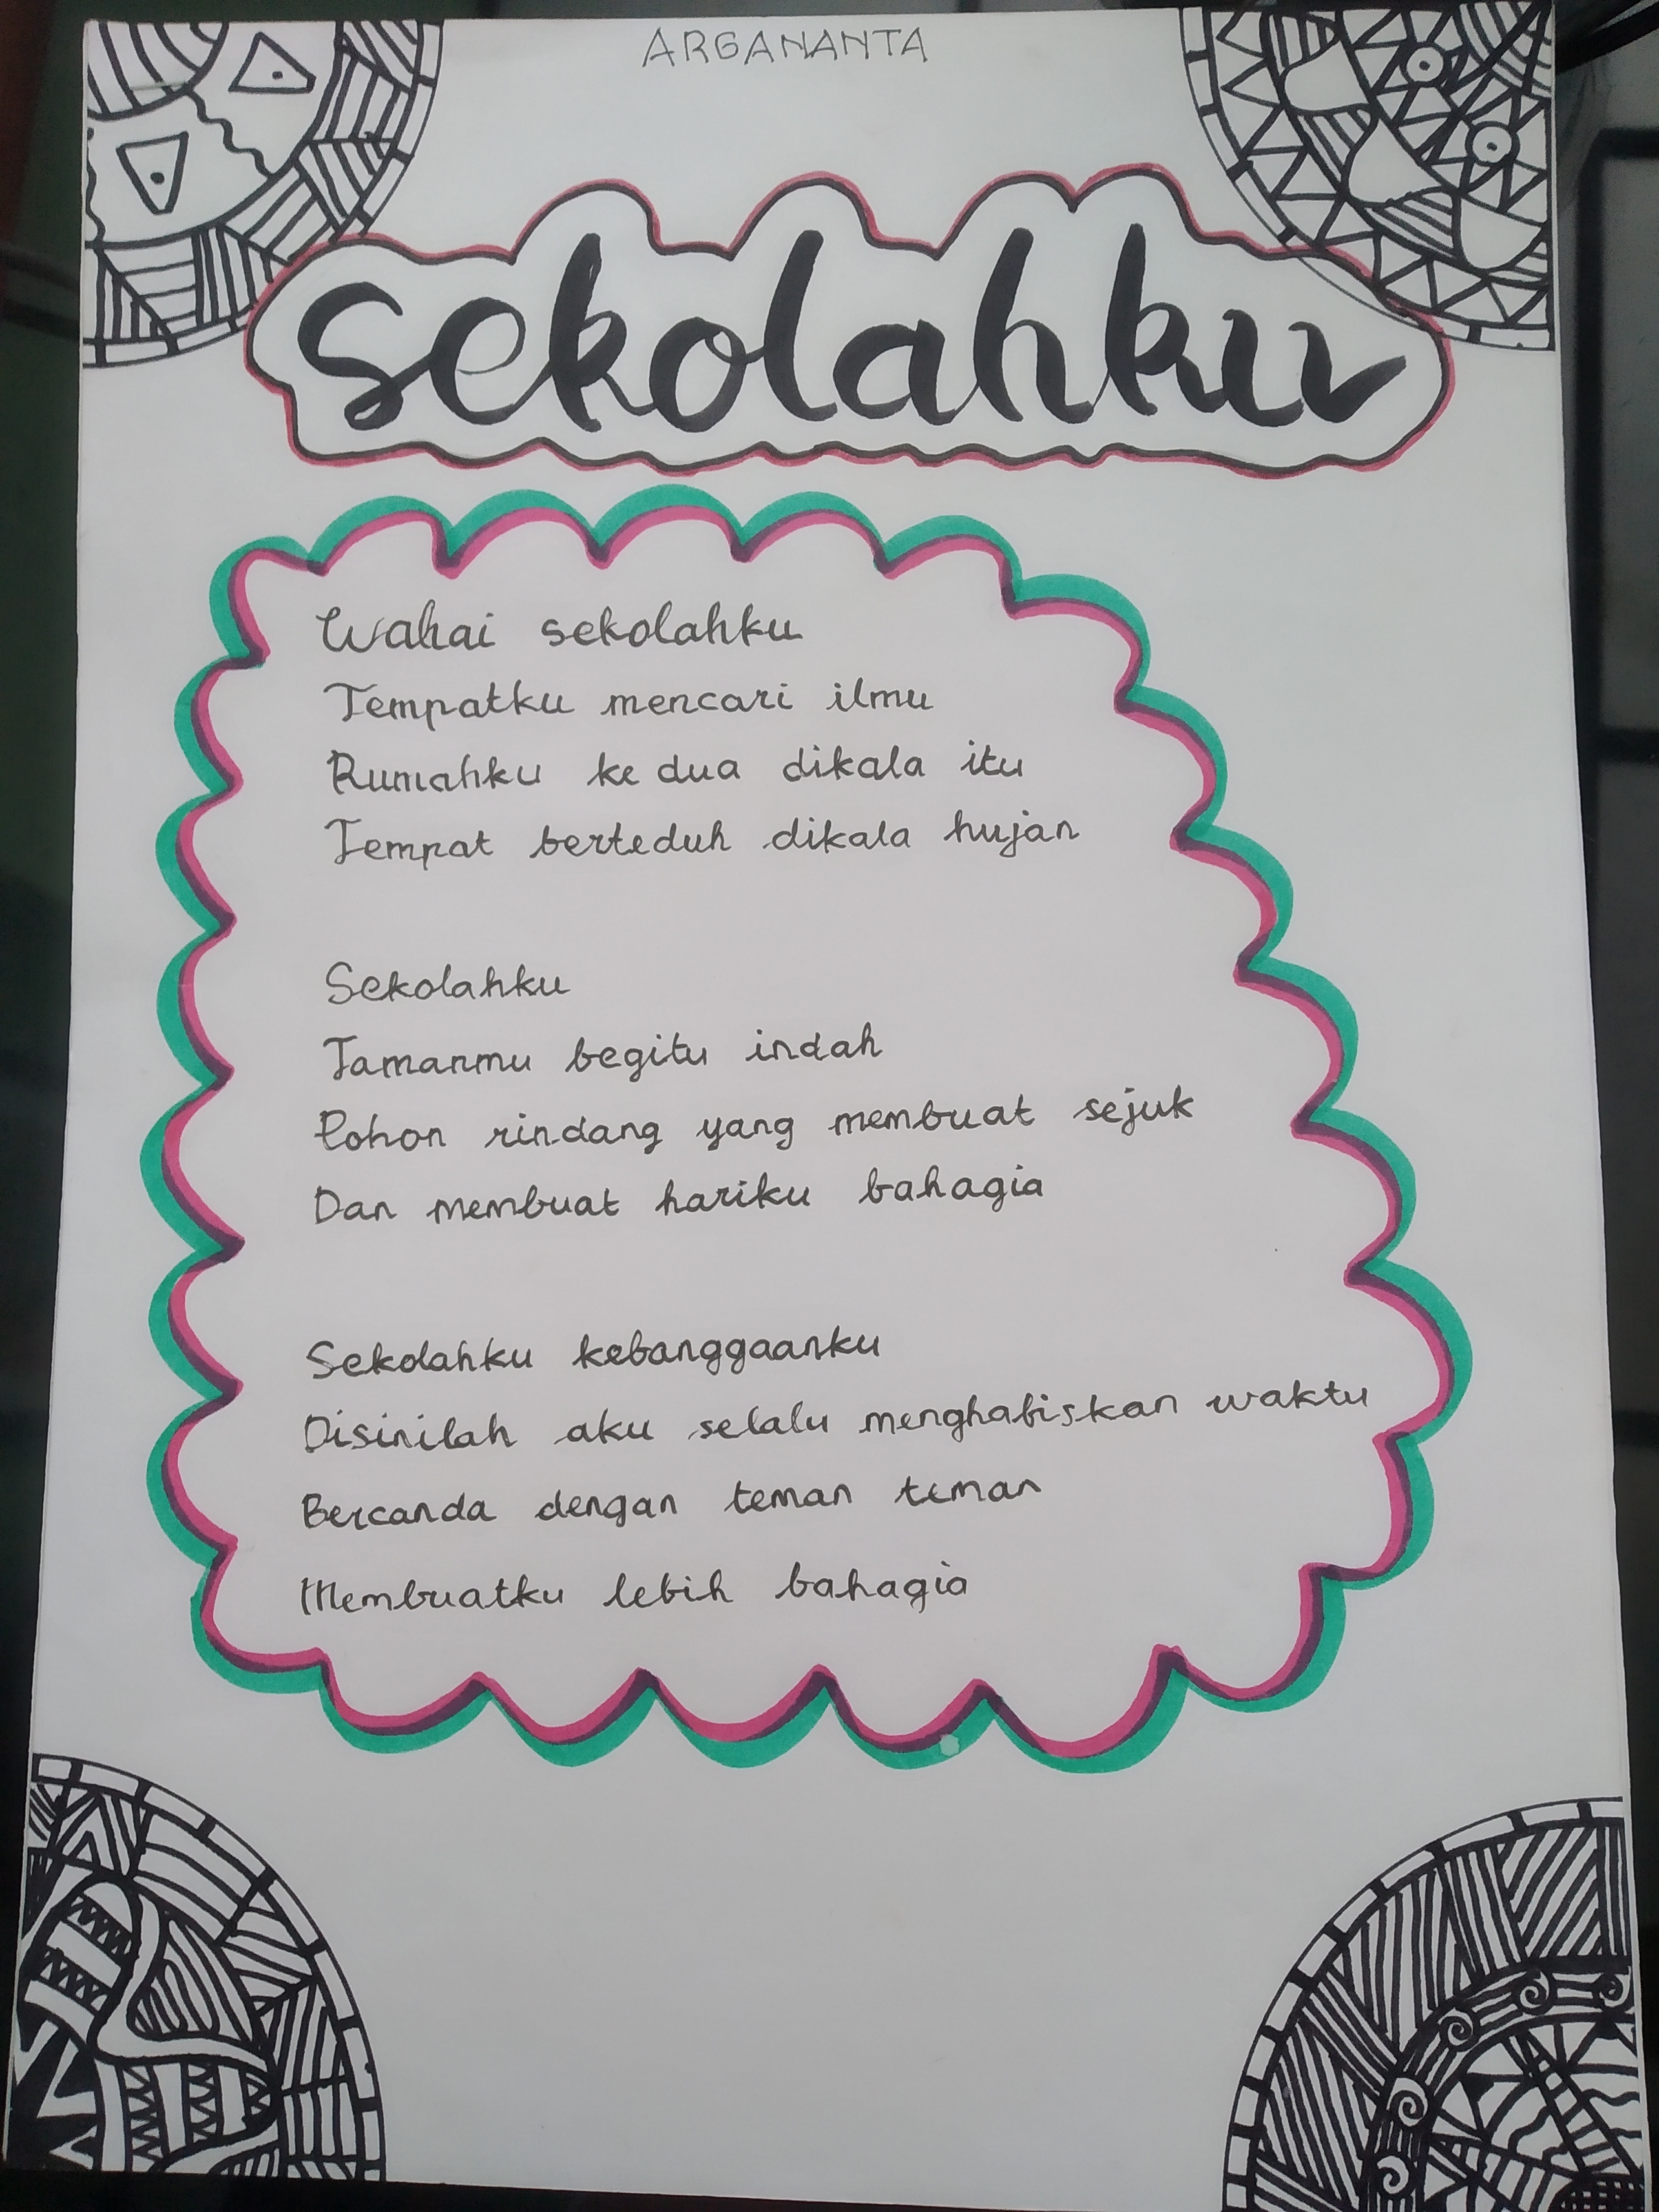 ARGANANTA
sekolahku
Wahai sekolahku
Tempatku mencari ilmu
Rumahku ke dua dikala itu
Tempat berteduh dikala hujan
Sekolahku
Tamanmu begitu indah
Pohon rindang yang membuat sejuk
Dan membuat hariku bahagia
Sekolahku kebanggaanku
Disinilah aku selalu menghabiskan waktu
Bercanda dengan teman teman
Membuatku lebih bahagia